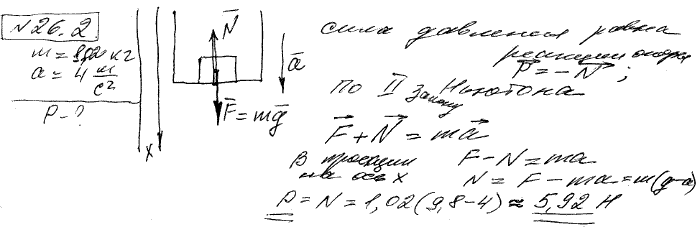 №26.2
m = 1,02 кг
a = 4 м/с²
P - ?
N̅
a̅
F̅ = mg̅
x
сила давления равна
реакции опоры
P⃗ = -N⃗ ;
По II закону Ньютона
F⃗ + N⃗ = ma⃗
В проекции F - N = ma
на ось x N = F - ma = m(g-a)
P = N = 1,02(9,8-4) ≈ 5,92 Н